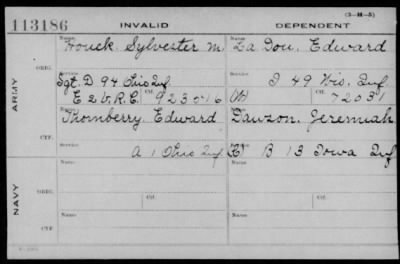 (3-H-5)
113186 INVALID DEPENDENT
Name Name
Houck. Sylvester M. La Dou, Edward
ARMY
ORIG.
Service Service
Sgt. D 94 Ohio Inf. I 49 Wis. Inf
E 2 V.R.C. Ctf. 923016 (A) Ctf. 72031
Name Name
Thornberry, Edward Dawson, Jeremiah
CTF.
Service Service
A 1 Ohio Inf. B 13 Iowa Inf
NAVY
Name Name
ORIG.
Service Ctf. Service Ctf.
Name Name
CTF.
Service Service